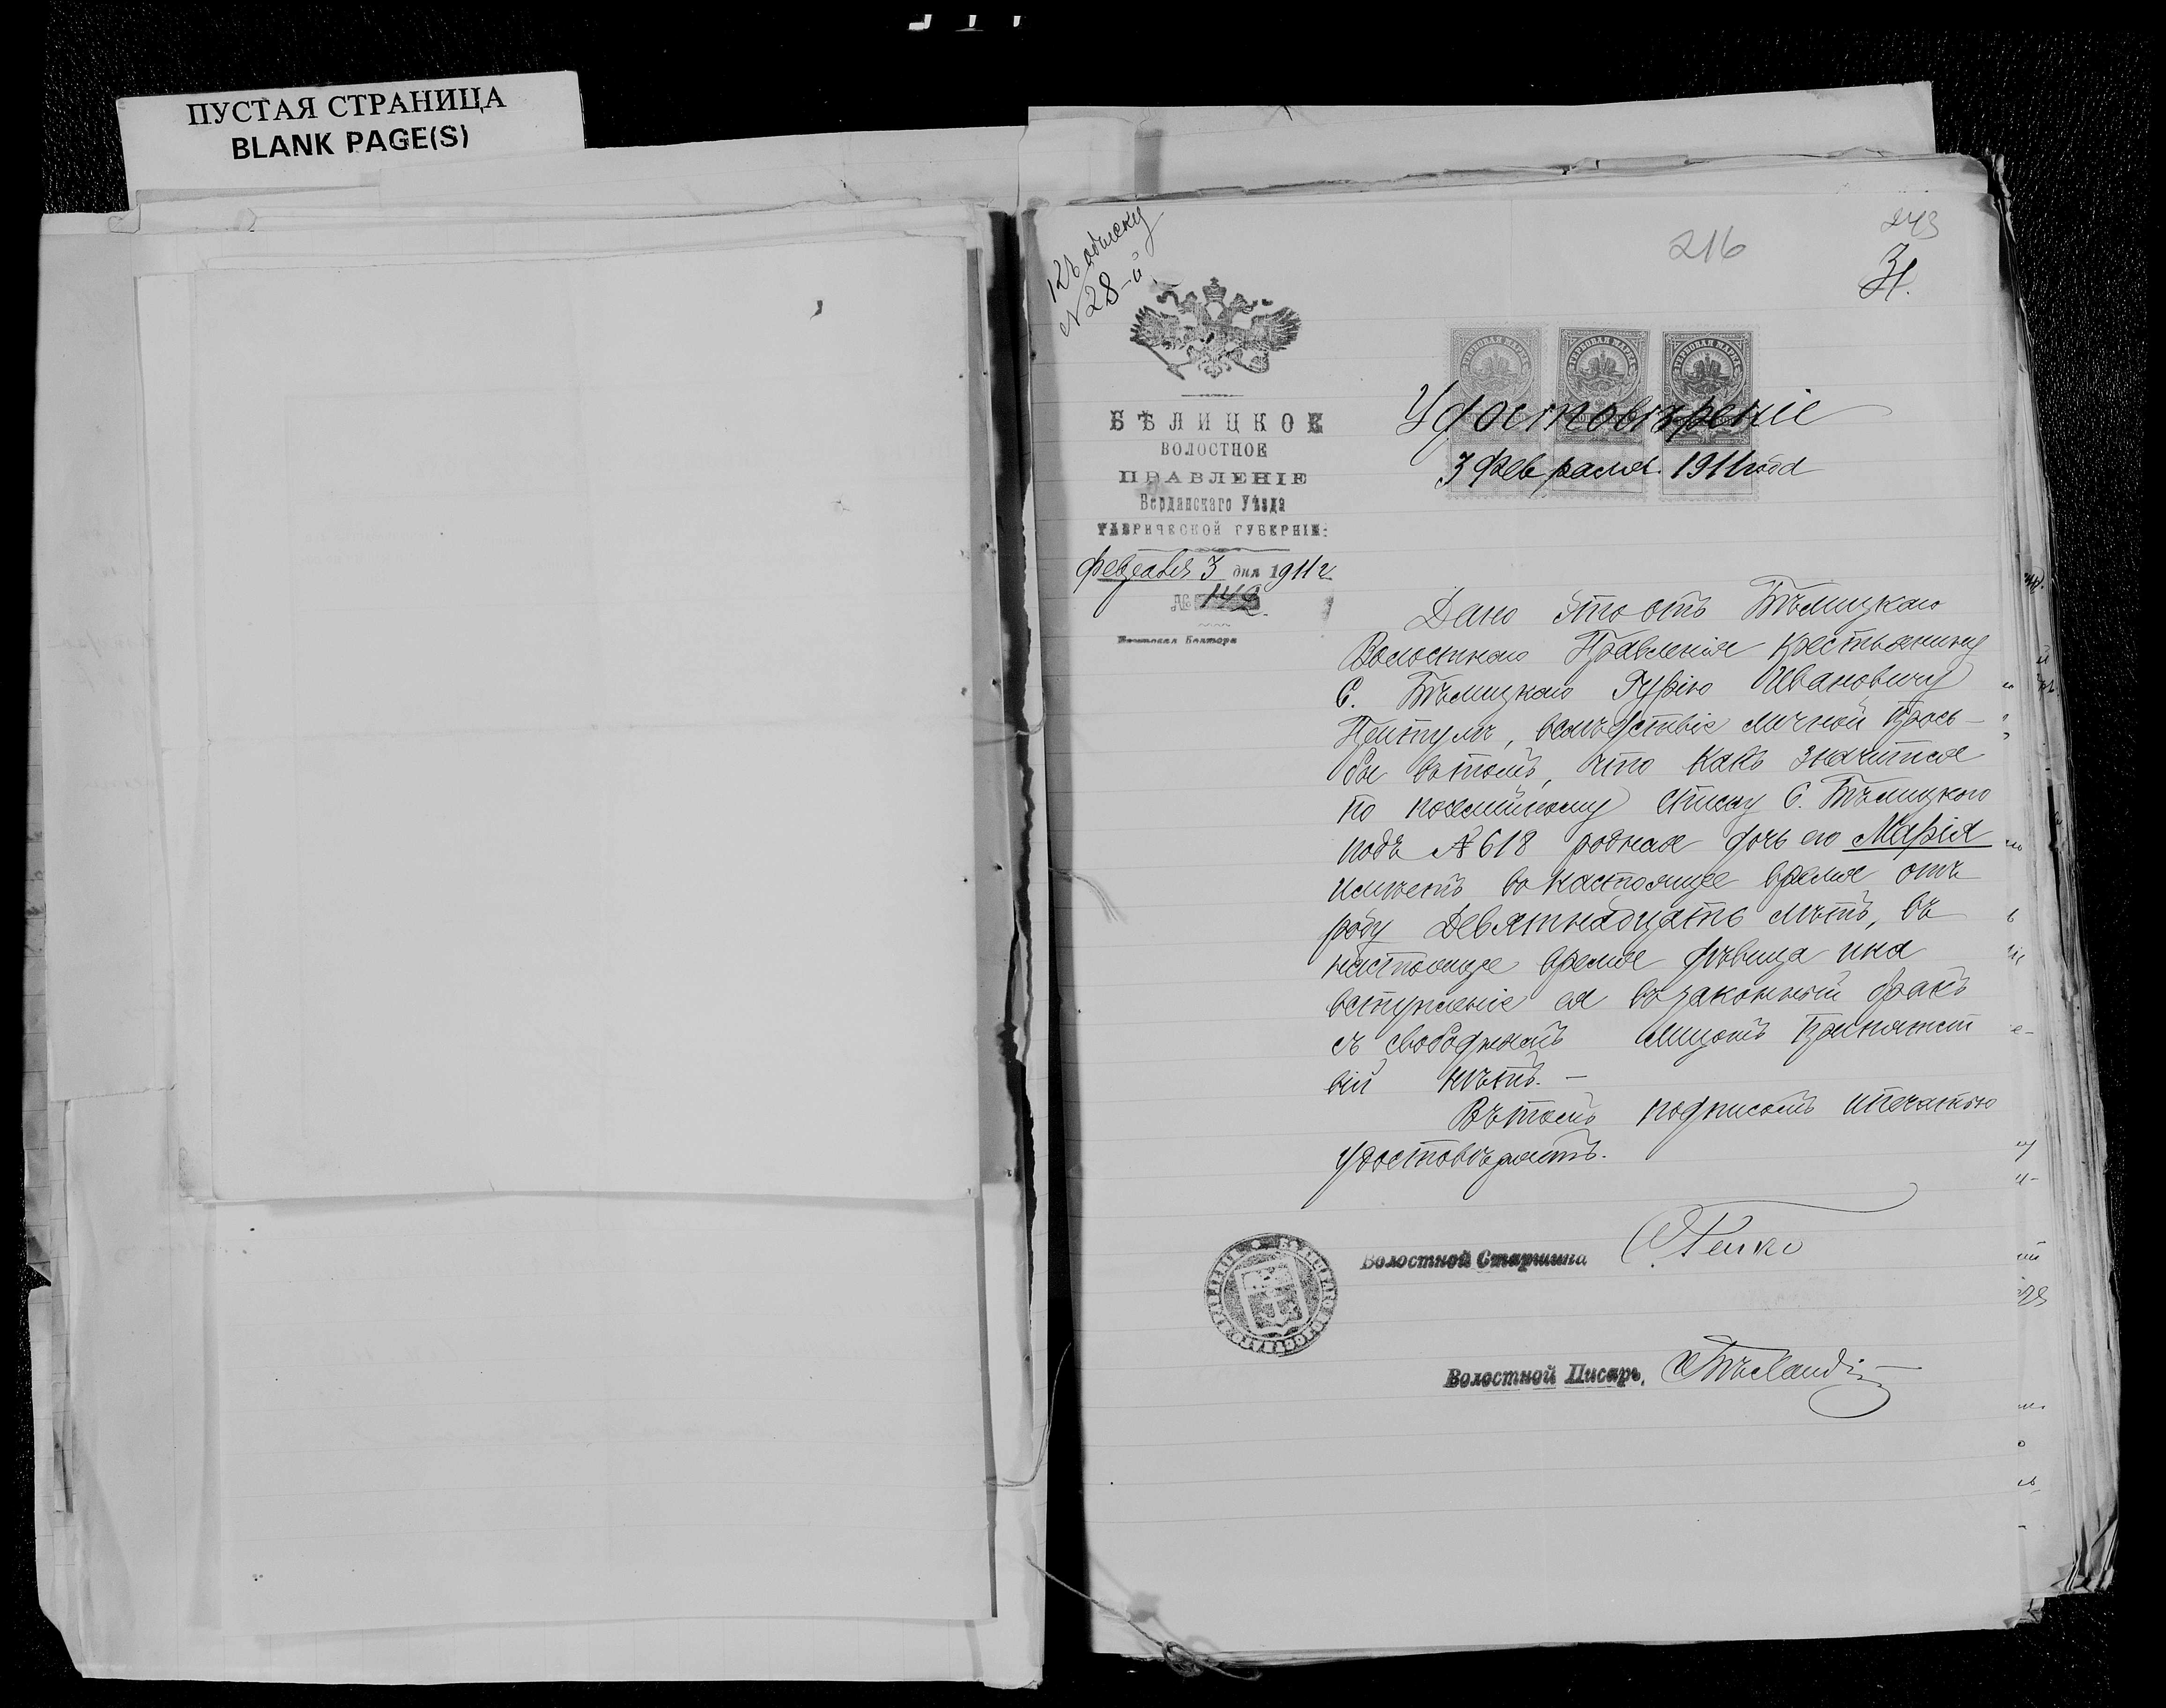 ПУСТАЯ СТРАНИЦА
BLANK PAGE(S)
Къ обыску
№ 28-й
216
243
31.
БѢЛИЦКОЕ
ВОЛОСТНОЕ
ПРАВЛЕНІЕ
Бердянскаго Уѣзда
ТАВРИЧЕСКОЙ ГУБЕРНІИ.
Февраля 3 дня 1911 г.
№ 142.
ГЕРБОВАЯ МАРКА
ГЕРБОВАЯ МАРКА
ГЕРБОВАЯ МАРКА
Удостовѣреніе
3 Февраля 1911 года
Дано это отъ Бѣлицкаго
Волостнаго Правленія крестьянину
С. Бѣлицкаго Гурію Ивановичу
вслѣдствіе личной прось-
бы въ томъ, что какъ значится
по посемейному списку С. Бѣлицкого
подъ № 618 родная дочь его Марія
имѣетъ въ настоящее время отъ
роду Девятнадцать лѣтъ, въ
настоящее время дѣвица и на
вступленіе ея въ законный бракъ
съ свободнымъ лицомъ препятст
вій нѣтъ. —
Въ томъ подписомъ и печатью
удостовѣряетъ.
Волостной Старшина
Волостной Писарь,